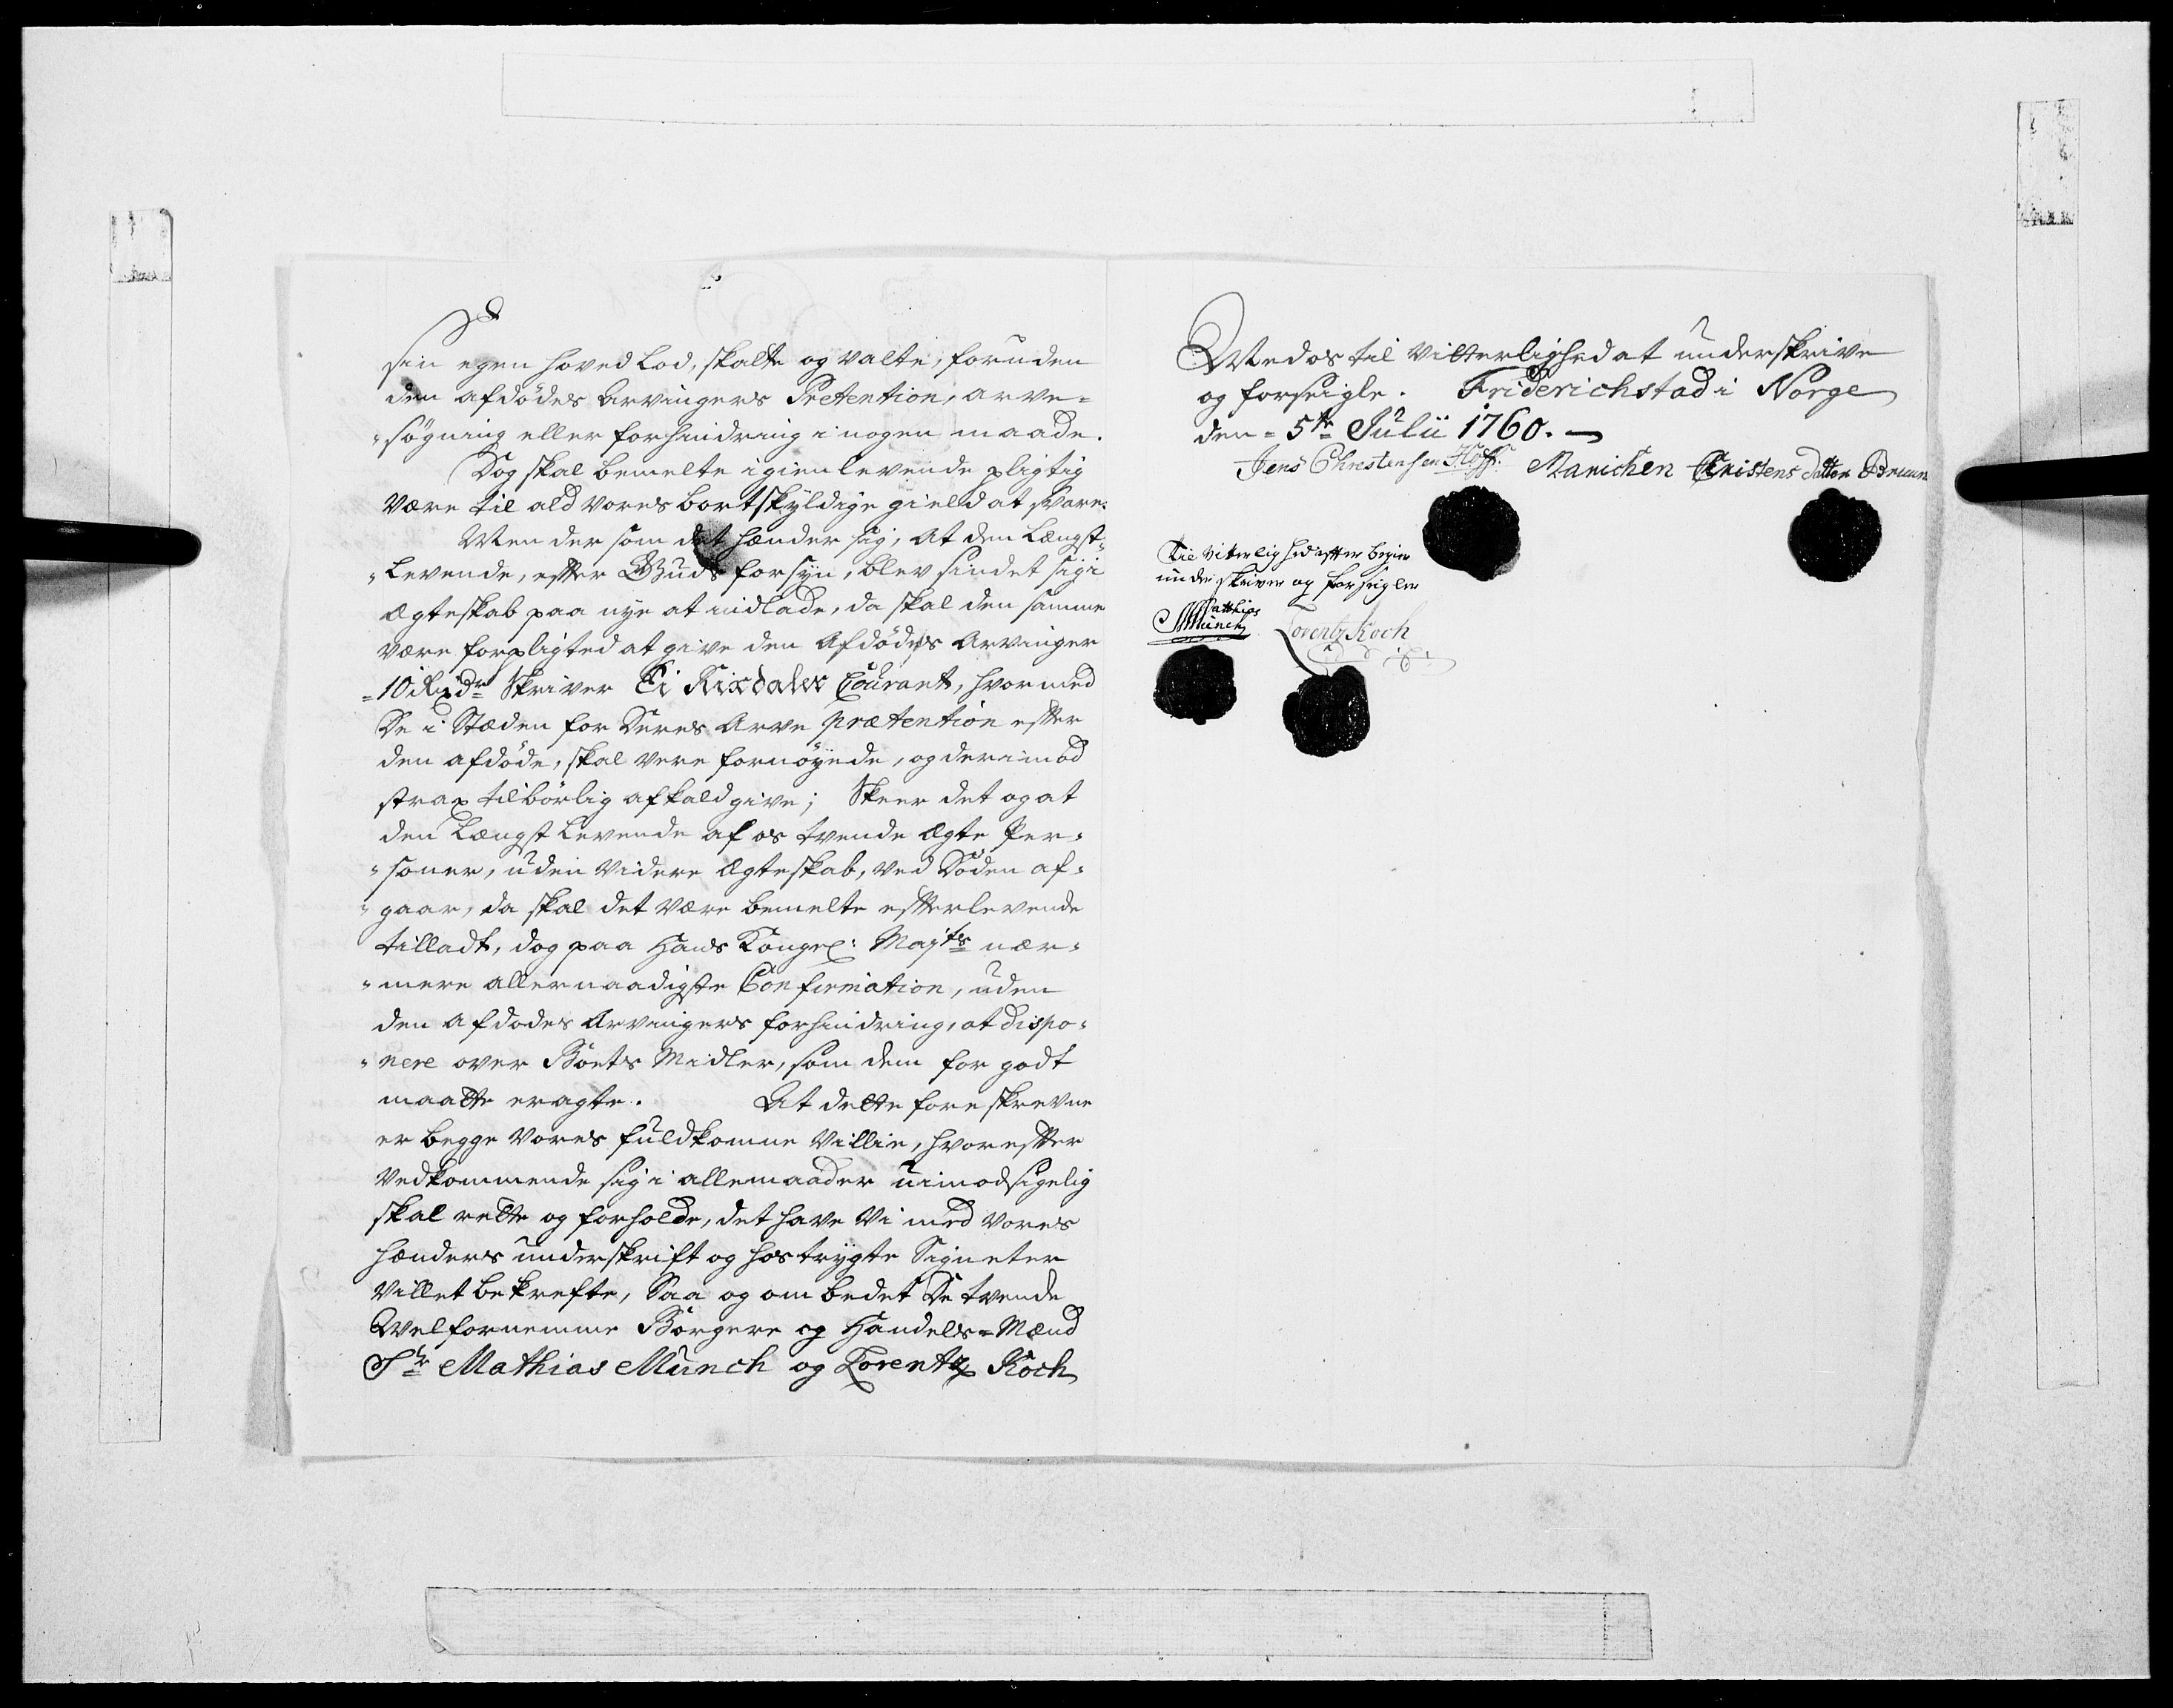 sin egen hoved Lod, skalte og valte, foruden
den afdødes Arvingers Pretention, arve-
søgning eller forhindring i nogen maade.
Dog skal bemelte igienlevende pligtig
være til ald vores bortskyldige gield at svare.
Men der som det hænder sig, at den Længst-
Levende, efter Guds forsyn, blev sindet sig i
Ægteskab paa nye at indlade, da skal den samme
være forpligted at give den Afdødes Arvinger
10 Rixdr Skriver Ti Rixdaler Courant, hvormed
De i Stæden for Deres Arve prætention efter
den afdøde, skal være fornøyede, og derimod
strax tilbörlig afkald give; Skeer det og at
den Længst Levende af os tvende Ægte Per-
soner, uden videre Ægteskab, ved Döden af-
gaar, da skal det være bemelte efterlevende
tilladt, dog paa Hans Kongel: Mayts nær-
mere allernaadigste Confirmation, uden
den afdødes Arvingers forhindring, at dispo-
nere over Boets Midler, som dem for godt
maatte eragte. At dette foreskrevne
er begge vores fuldkomne Villie, hvorefter
vedkommende sig i allemaader uimodsigelig
skal rette og forholde, det have Vi med vores
hænders underskrift og hostrygte Signeter
villet bekrefte, Saa og ombedet De tvende
Welfornemme Borgere og Handels-Mænd
Sr Mathias Münch og Lorentz Koch
Med os til vitterlighed at underskrive
og forseigle. Friderichstad i Norge
den 5te Julii 1760.
Jens Christensen Hoff. Marichen Cristens Datter Bruun
Til viterlighed efter begier
underskriver og forseigler
Matthias
Münch Lorentz Koch